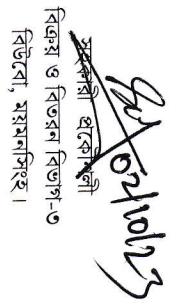 ০২/১০/২৩
সহকারী প্রকৌশলী
বিক্রয় ও বিতরন বিভাগ-৩
বিউবো, ময়মনসিংহ।